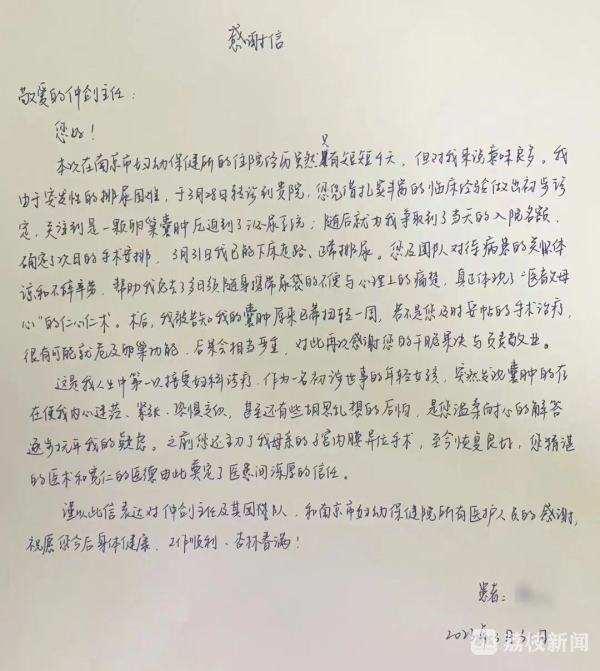 感谢信
敬爱的仲剑主任：
您好！
本次在南京市妇幼保健所的住院经历虽然只有短短4天，但对我来说意味良多。我
由于突发性的排尿困难，于3月28日转诊到贵院，您凭借扎实丰富的临床经验做出初步诊
定，关注到是一颗卵巢囊肿压迫到了泌尿系统；随后就为我争取到了当天的入院名额，
确定了次日的手术安排，3月31日我已能下床走路、正常排尿。您及团队对待病患的关怀体
谅和不辞辛劳，帮助我免去了多日须随身携带尿袋的不便与心理上的痛楚，真正体现了“医者父母
心”的仁心仁术。术后，我被告知我的囊肿原来已蒂扭转一周，若不是您及时妥帖的手术治疗，
很有可能就危及卵巢功能，后果会相当严重，对此再次感谢您的干脆果决与负责敬业。
这是我人生中第一次接受妇科诊疗，作为一名初涉世事的年轻女孩，突然发现囊肿的存
在使我内心迷茫、紧张、恐惧交织，甚至还有些胡思乱想的后怕，是您温柔耐心的解答
逐步抚平我的疑虑。之前您还主刀了我母亲的子宫内膜异位手术，至今恢复良好，您精湛
的医术和宽仁的医德由此奠定了医患间深厚的信任。
谨以此信表达对仲剑主任及其团队、和南京市妇幼保健院所有医护人员的感谢，
祝愿您今后身体健康、工作顺利、杏林春满！
患者：
2023年3月31日
荔枝新闻